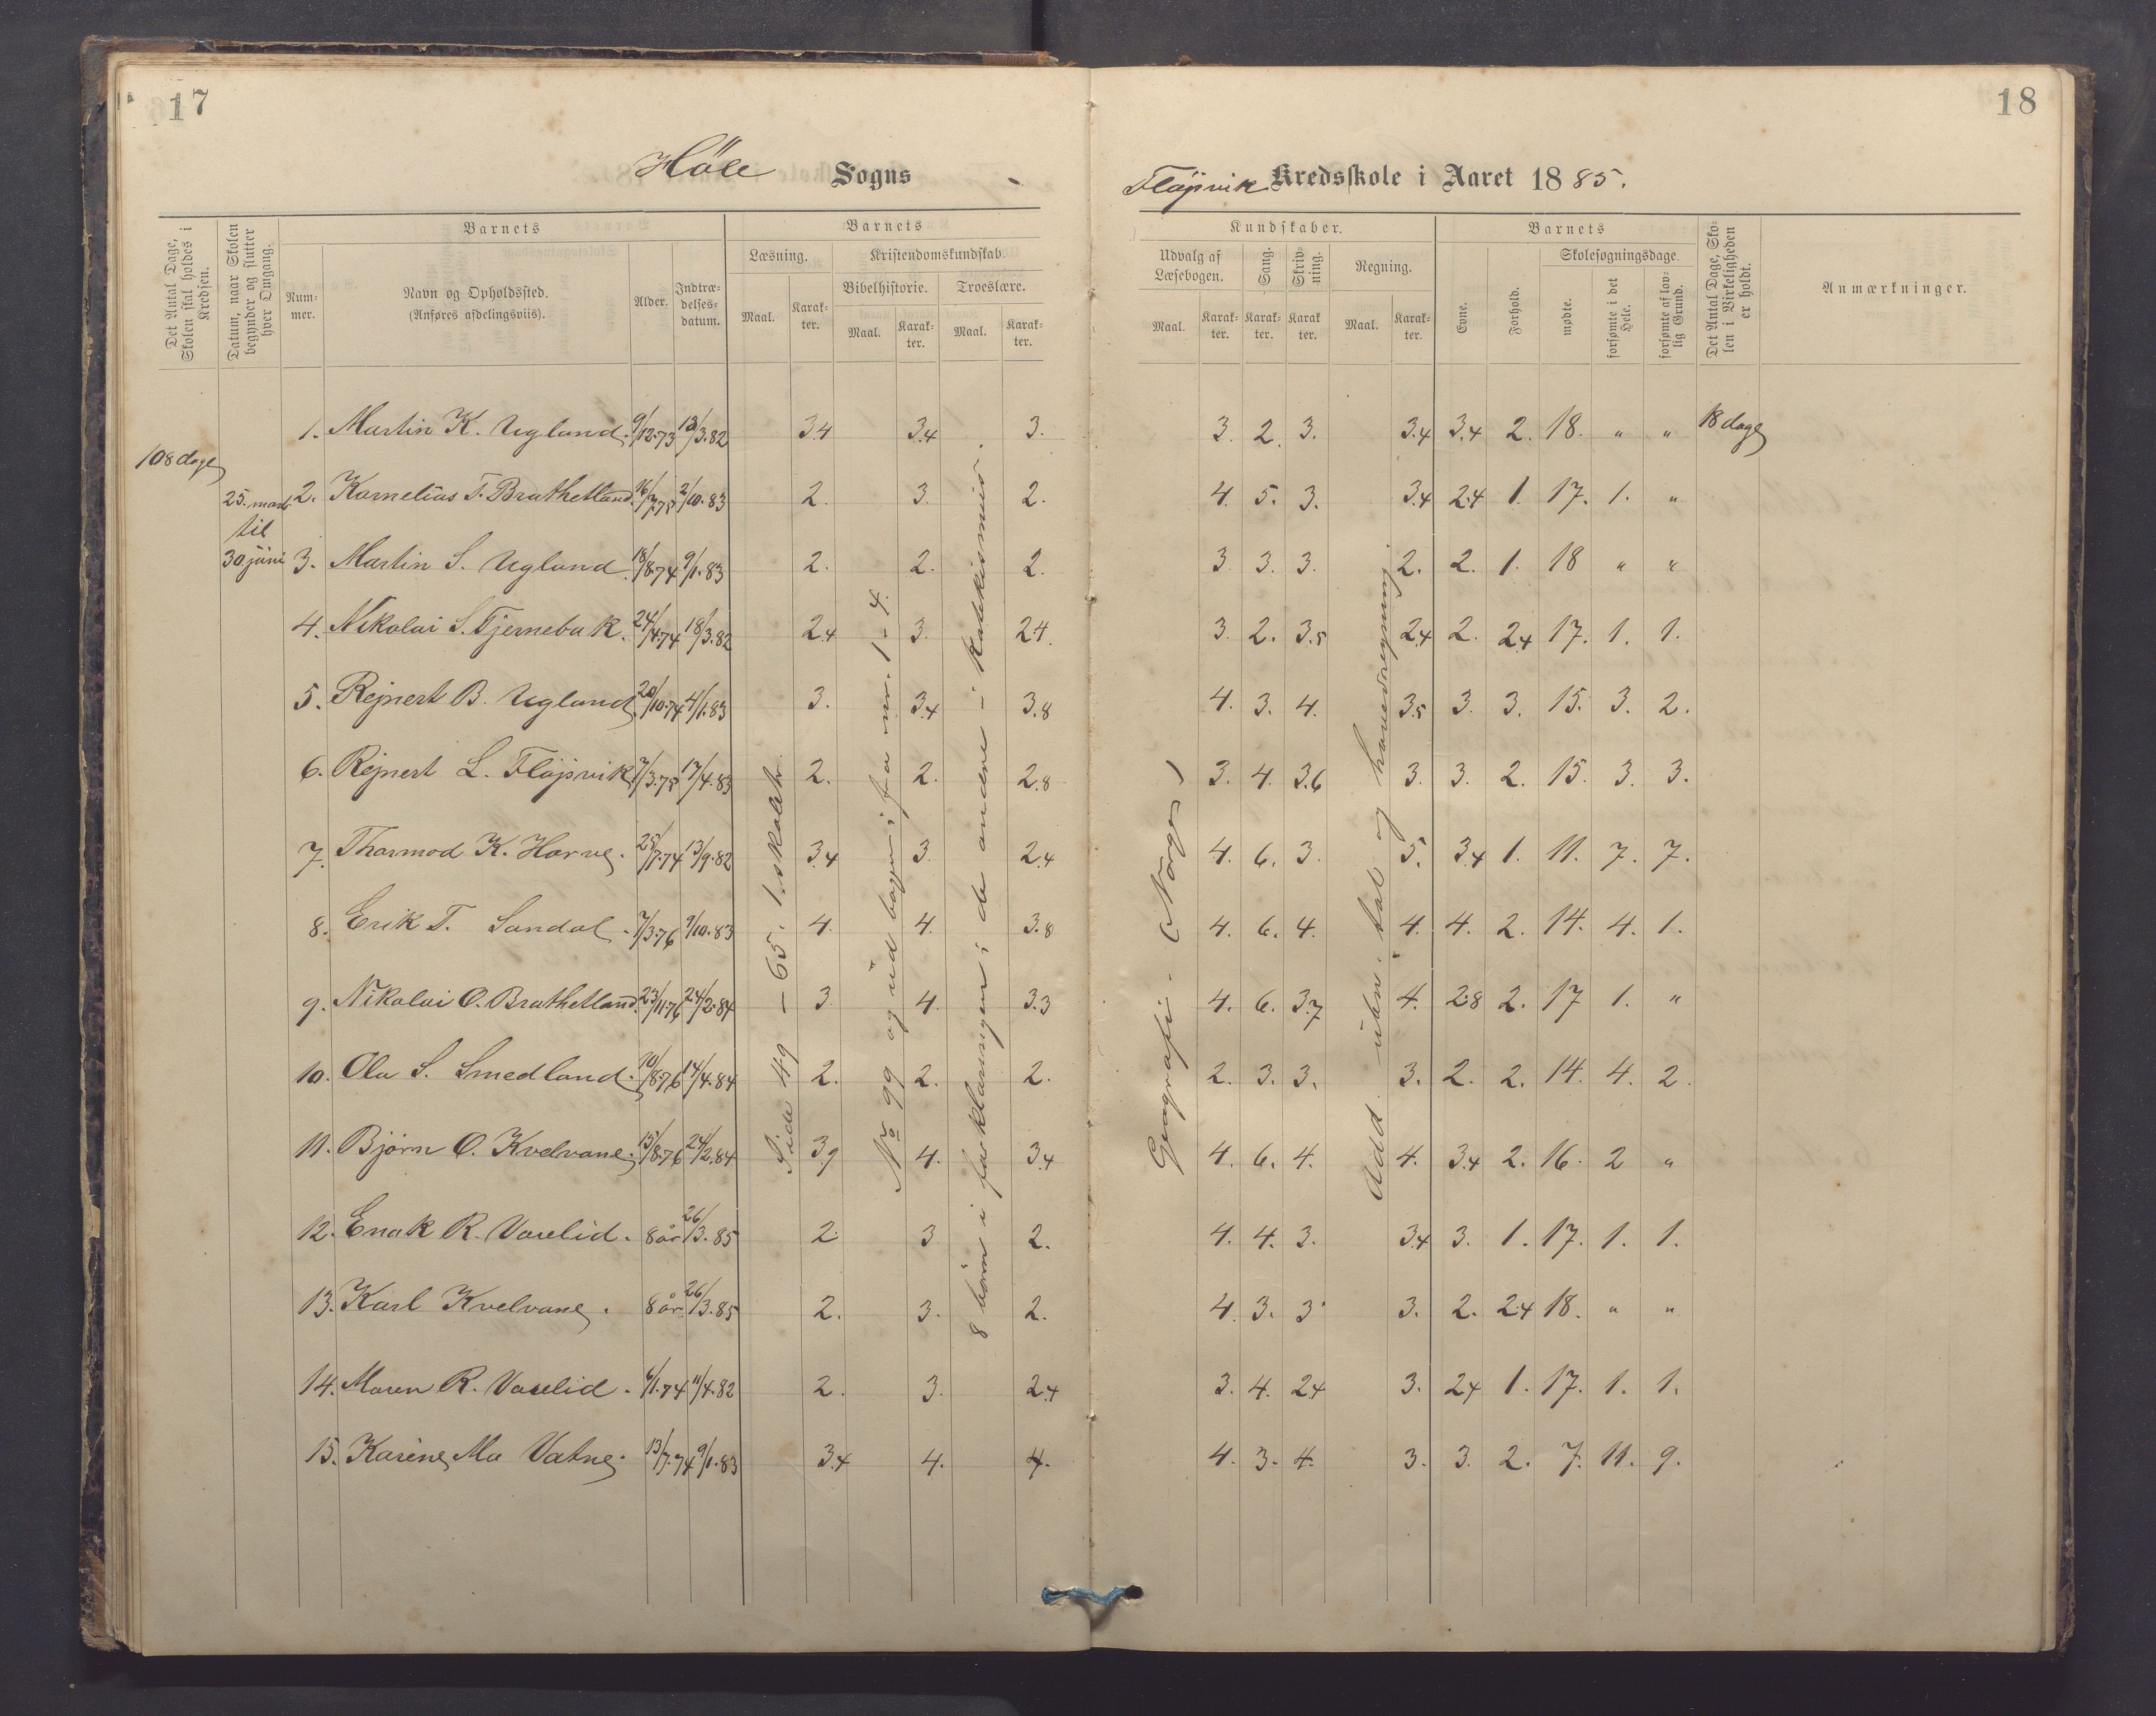 17
18
Höle Sogns
Fløjsvik Kredsskole i Aaret 1885.
Det Antal Dage, Skolen skal holdes i Kredsen.
Datum, naar Skolen begynder og slutter hver Omgang.
Barnets
Nummer.
Navn og Opholdssted.
(Anføres afdelingsviis).
Alder.
Indtrædelsesdatum.
Barnets
Læsning.
Maal.
Karakter.
Kristendomskundskab.
Bibelhistorie.
Maal.
Karakter.
Troeslære.
Maal.
Karakter.
Kundskaber.
Udvalg af Læsebogen.
Maal.
Karakter.
Sang.
Karakter.
Skrivning.
Karakter
Regning.
Maal.
Karakter.
Barnets
Evne.
Forhold.
Skolesøgningsdage.
mødte.
forsømte i det Hele.
forsømte af lovlig Grund.
Det Antal Dage, Skolen i Virkeligheden er holdt.
Anmærkninger.
108 dage
25. marts
til
30 juni
1. Martin K. Ugland. 9/12.73 13/3.82 3.4 3.4 3. 3. 2. 3. 3.4 3.4 2. 18. " " 18 dage
2. Kornelius T. Brathetland. 16/7.75 2/10.83 2. 3. 2. 4. 5. 3. 3.4 2.4 1. 17. 1. "
3. Martin S. Ugland. 18/8.74 9/1.83 2. 2. 2. 3. 3. 3. 2. 2. 1. 18 " "
4. Nikolai S. Tjernebak. 24/4.74 18/3.82 2.4 3. 2.4. 3. 2. 3.5 2.4 2. 2.4 17. 1. 1.
5. Rejnert B. Ugland. 20/10.74 4/1.83 3. 3.4 3.8 4. 3. 4. 3.5 3. 3. 15. 3. 2.
6. Rejnert L. Fløjsvik 7/3.75 17/4.83 2. 2. 2.8 3. 4. 3.6 3. 3. 2. 15. 3. 3.
7. Thormod K. Horve. 25/7.74 13/9.82 3.4 3. 2.4 4. 6. 3. 5. 3.4 1. 11. 7. 7.
8. Erik T. Sandal. 7/3.76 9/10.83 4. 4. 3.8 4. 6. 4. 4. 4. 2. 14. 4. 1.
9. Nikolai O. Brathetland. 23/11.76 24/2.84 3. 4. 3.3 4. 6. 3.7 4. 2.8 2. 17 1. "
10. Ola S. Smedland. 10/8.76 14/4.84 2. 2. 2. 2. 3. 3. 3. 2. 2. 14. 4. 2.
11. Bjørn O. Kvelvane. 15/8.76 24/2.84 3.9 4. 3.4 4. 6. 4. 4. 3.4 2. 16. 2 "
12. Enok R. Vaselid. 8 år 26/3.85 2. 3 2. 4. 4. 3. 3.4 3. 1. 17. 1. 1.
13. Karl Kvelvane. 8 år 26/3.85 2. 3. 2. 4. 3. 3. 3. 2. 2.4 18. " "
14. Maren R. Vaselid. 6/1.74 11/4.82 2. 3. 2.4 3. 4. 2.4 3. 2.4 1. 17. 1. 1.
15. Karine Ma Vatne. 13/7.74 9/1.83 3.4 4. 4. 4. 3. 4. 3. 3. 2. 7. 11. 9.
Side 49 - 65. 1. skoletr.
No 99 og ud bogen; fra nr. 1 - 4.
8 børn i forklaringen; de andre i katekismus.
Geografi - (Norge)
Add. uben. tal og hovedregning.